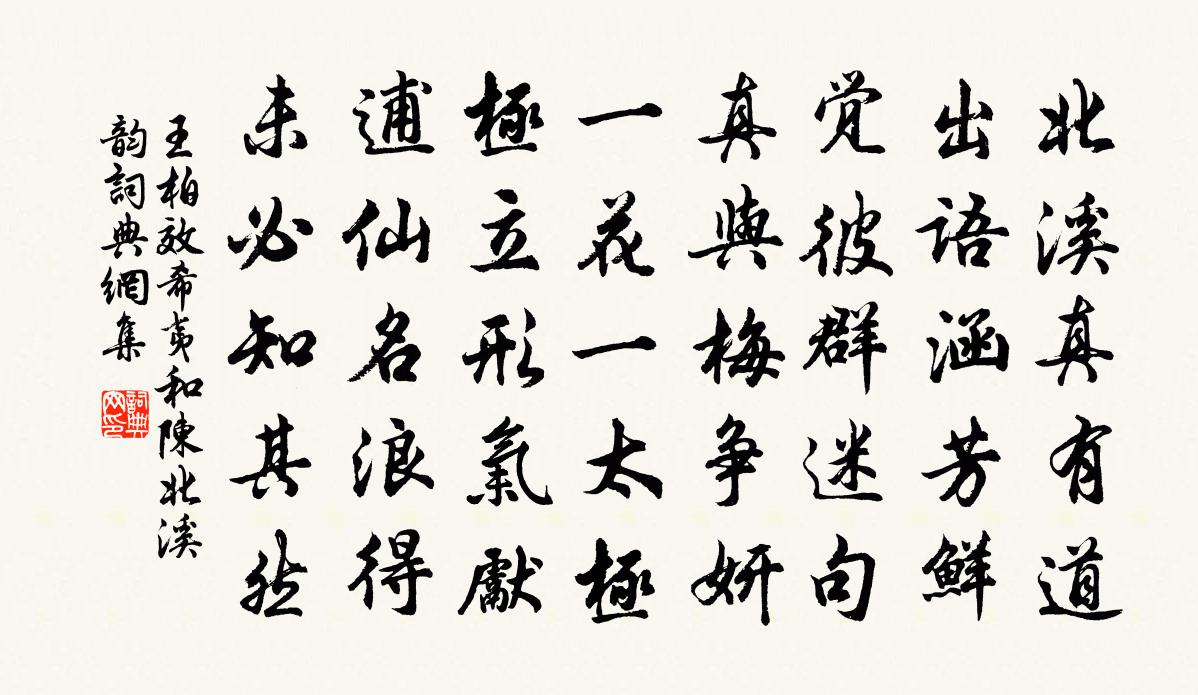 北溪真有道
出語涵芳鮮
覚彼群迷句
真與梅争妍
一花一太極
極立形氣獻
逋仙名浪得
未必知其然
王柏效希夷和陳北溪
韵詞典網集
詞典
网印